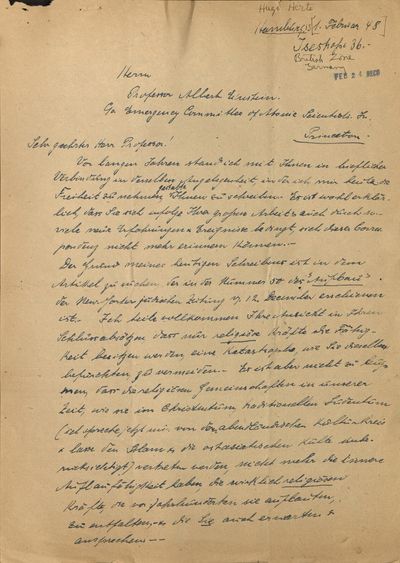 Hugo Horte
Hamburg 13, 1. Februar 48
Isestraße 36.-
British Zone
Germany
FEB 24 RECD
Herrn
Professor Albert Einstein.
C/o Emergency Committee of Atomic Scientists In.
Princeton.
Sehr geehrter Herr Professor!
Vor langen Jahren stand ich mit Ihnen in brieflicher
Verbindung in derselben Angelegenheit, in der ich mir heute die
Freiheit zu nehmen gestatte Ihnen zu schreiben. Es ist wohl erklär-
lich, dass Sie sich infolge Ihrer großen Arbeit & auch durch so
viele neue Erfahrungen & Ereignisse bedingt, sich dieser Korres-
pondenz nicht mehr erinnern können.-
Der Grund meines heutigen Schreibens ist in dem
Artikel zu suchen, der in der Nummer 50 des "Aufbau"
der New Yorker jüdischen Zeitung v. 12. December erschienen
ist. Ich teile vollkommen Ihre Ansicht in Ihren
Schlussabsätzen dass nur religiöse Kräfte die Fähig-
keit besitzen werden eine Katastrophe, wie Sie dieselbe
befürchten zu vermeiden.- Es ist aber nicht zu
dass die religiösen Gemeinschaften in unserer
Zeit, wie sie im Christentum, traditionellen Judentum
(ich spreche jetzt nur von den abendländischen Kultur Kreis
& lasse den Islam & die ostasiatischen Kulte unbe-
rücksichtigt) vertreten werden, nicht mehr die innere
haben die wirklich religiösen
Kräfte, die vor Jahrhunderten sie aufbauten,
zu entfalten,- & die Sie auch erwarten &
ansprechen.--